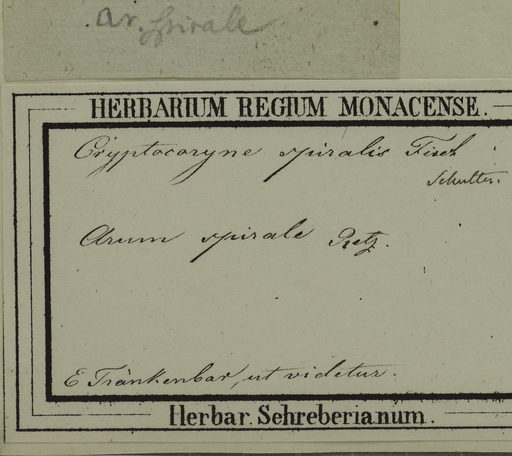 Ar. spirale
HERBARIUM REGIUM MONACENSE.
Cryptocoryne spiralis Fisch
Schultes.
Arum spirale Retz.
E Tränkenbar, ut videtur.
Herbar. Schreberianum.